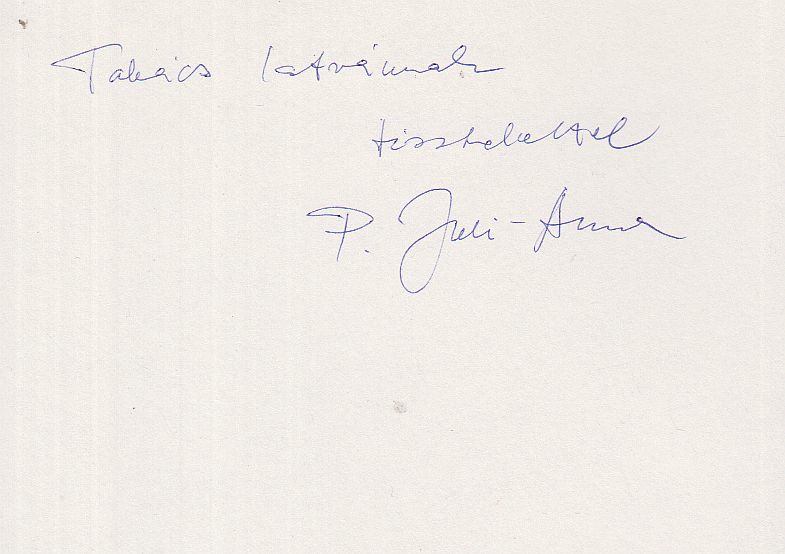 Takács Istvánnak
tisztelettel
P. Juli-Anna